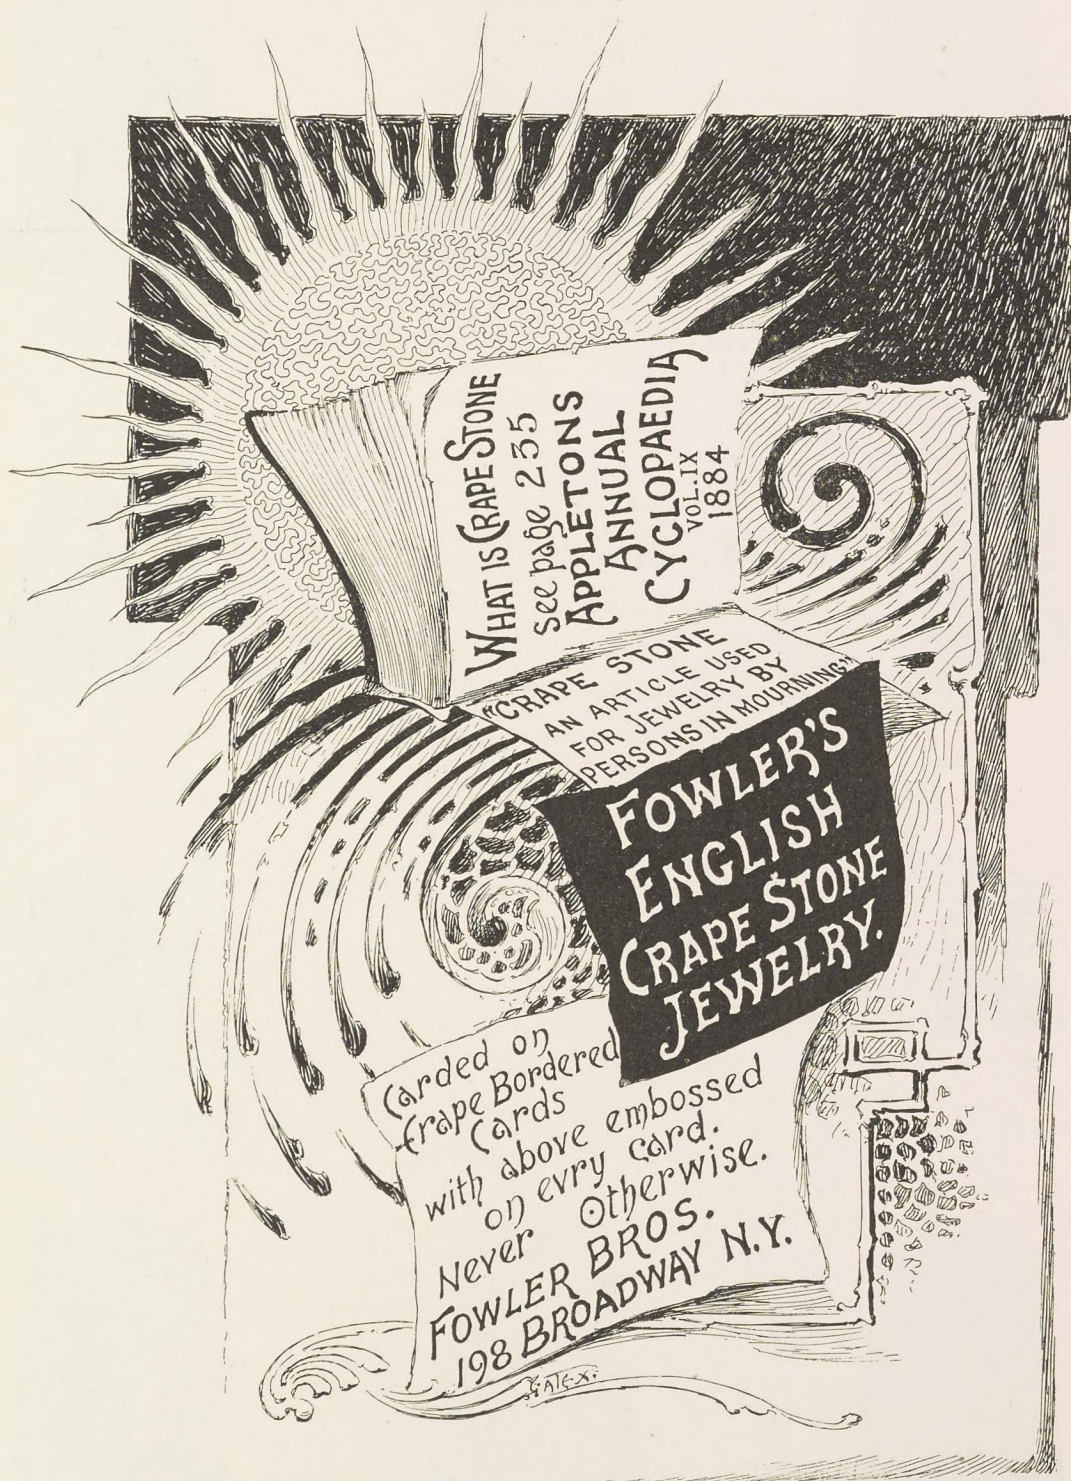 WHAT IS CRAPE STONE
see page 235
APPLETONS
ANNUAL
CYCLOPAEDIA
VOL. IX
1884
"CRAPE STONE
AN ARTICLE USED
FOR JEWELRY BY
PERSONS IN MOURNING"
FOWLER'S
ENGLISH
CRAPE STONE
JEWELRY.
Carded on
Crape Bordered
Cards
with above embossed
on evry card.
Never Otherwise.
FOWLER BROS.
198 BROADWAY N.Y.